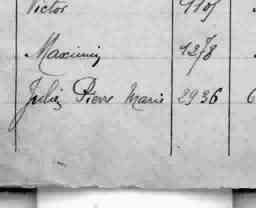 Victor 1105
Maximin 1278
Julie Pierre Marie 2936 6